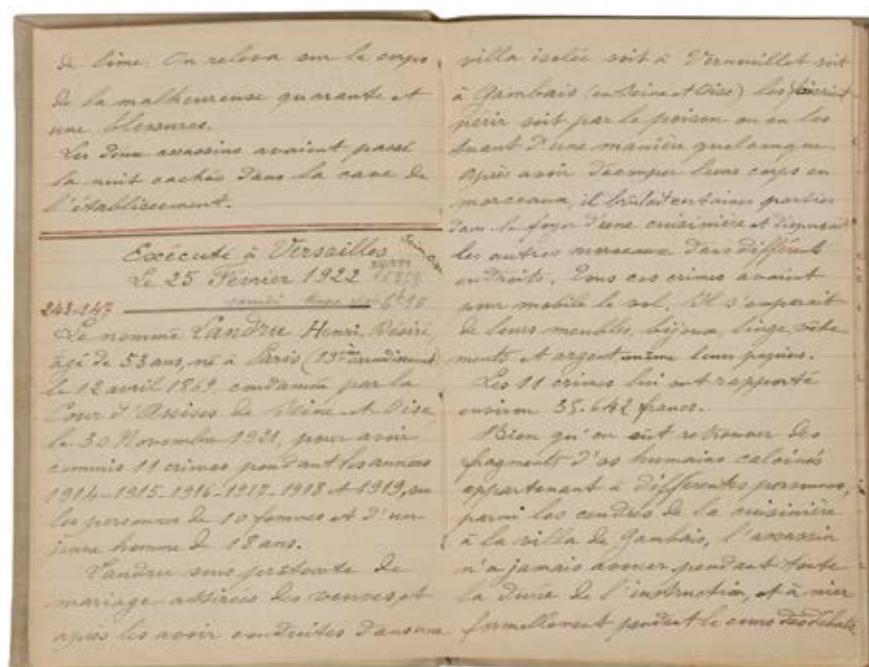 de lime. On releva sur le corps
de la malheureuse quarante et
une blessures.
Les deux assassins avaient passé
la nuit cachés dans la cave de
l'établissement.
Exécuté à Versailles
Le 25 Février 1922
samedi 6h10
243-147
Le nommé Landru Henri, Désiré,
âgé de 53 ans, né à Paris (19ème arrondissement)
le 12 avril 1869, condamné par la
Cour d'Assises de Seine et Oise,
le 30 Novembre 1921, pour avoir
commis 11 crimes pendant les années
1914-1915-1916-1917-1918 et 1919, sur
les personnes de 10 femmes et d'un
jeune homme de 18 ans.
Landru sous prétexte de
mariage attirées des veuves, et
après les avoir conduites dans une
villa isolée soit à Vernouillet soit
à Gambais (en Seine et Oise) les
périr soit par le poison ou en les
tuant d'une manière quelconque
après avoir découper leurs corps en
morceaux, il brûlait certaines parties
dans le foyer d'une cuisinière et dispersait
les autres morceaux dans différent
endroits. Tous ces crimes avaient
pour mobile le vol. Il s'emparait
de leurs meubles, bijoux, linge, vête
ments et argent même leurs papiers.
Les 11 crimes lui ont rapporté
environ 35.642 francs.
Bien qu'on eût retrouver des
fragments d'os humains calcinés
appartenant à différentes personnes,
parmi les cendres de la cuisinière
à la villa de Gambais, l'assassin
n'a jamais avouer pendant toute
la durée de l'instruction, et à nier
formellement pendant le cours des débats